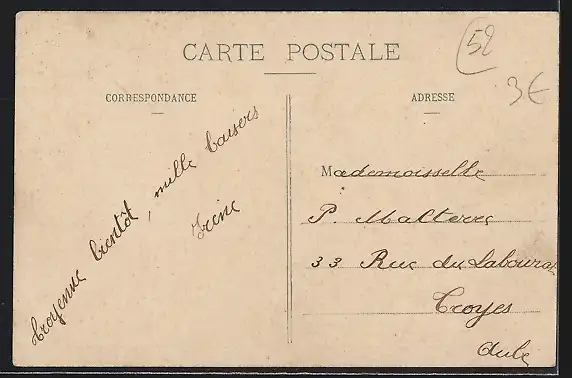 CARTE POSTALE
52
3€
CORRESPONDANCE
ADRESSE
troyenne bientôt, mille baisers
Irène
Mademoisselle
P. Malterre
33 Rue du Labourat
Troyes
Aube